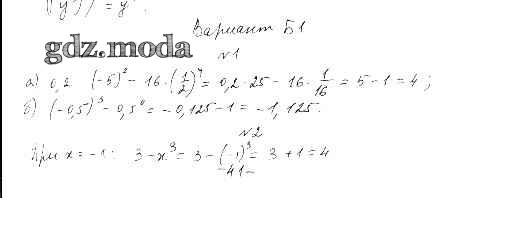 ) = y
Вариант Б1
gdz.moda
№1
а) 0,2 (-5)² - 16·(1/2)⁴ = 0,2·25 - 16·1/16 = 5 - 1 = 4;
б) (-0,5)³ - 0,5⁰ = -0,125 - 1 = -1,125.
№2
При x = -1: 3 - x³ = 3 - (-1)³ = 3 + 1 = 4
-41-